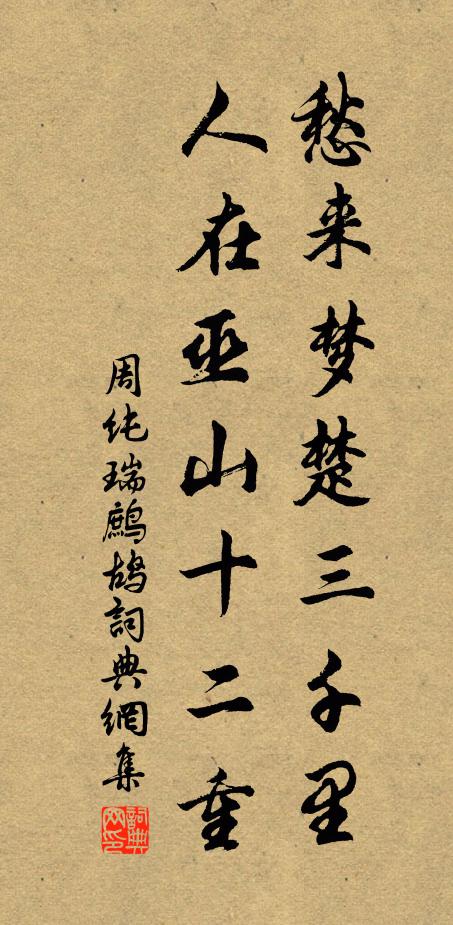 愁来梦楚三千里
人在巫山十二重
周纯瑞鹧鸪詞典網集
詞典网印